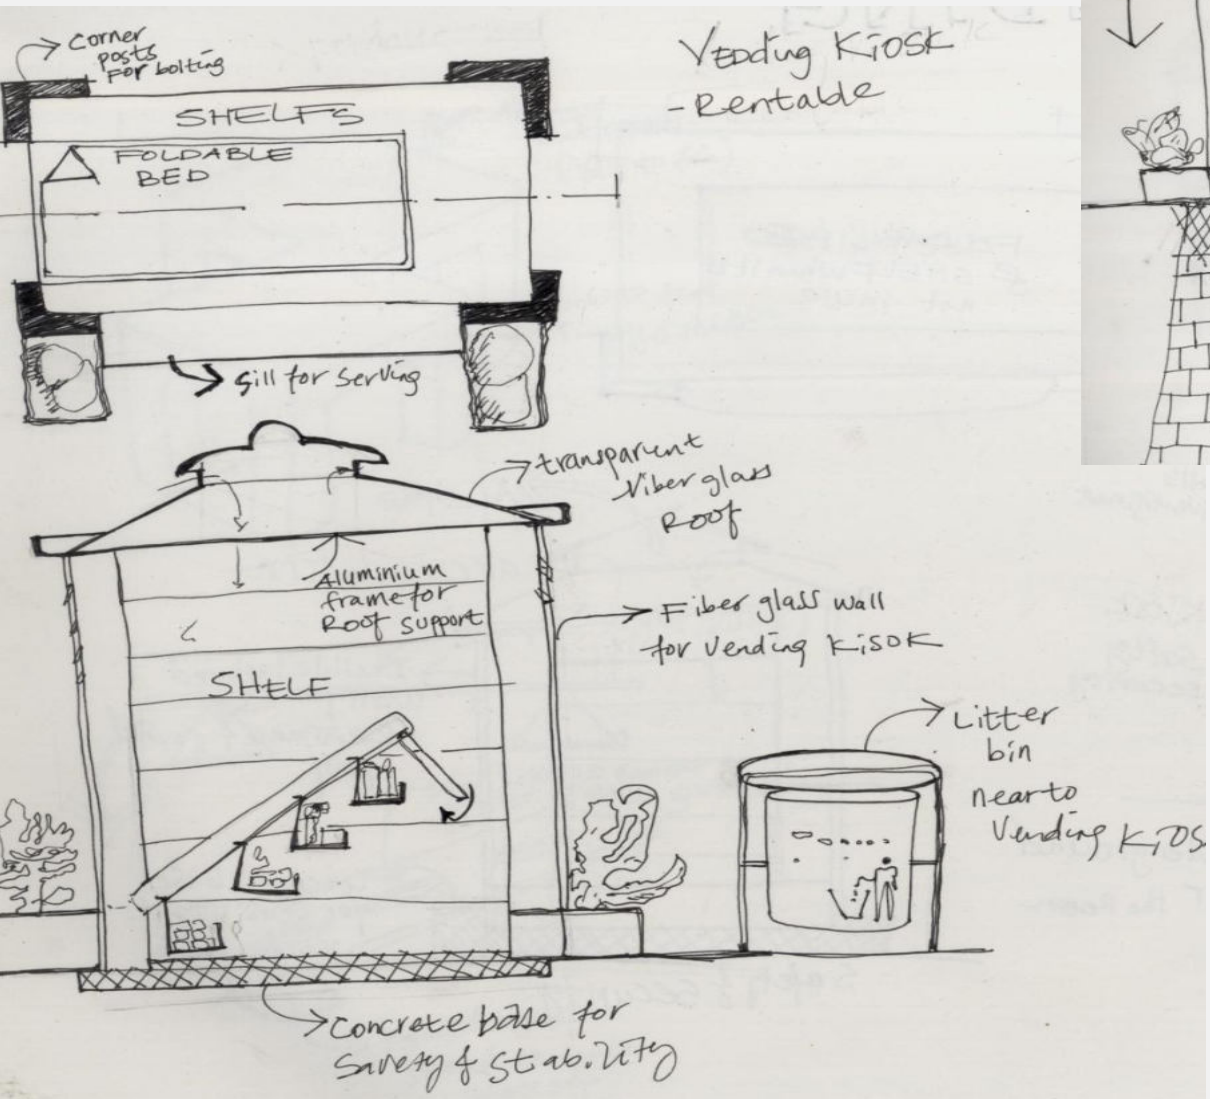 Corner
posts
for bolting
Vending Kiosk
- Rentable
SHELFS
FOLDABLE
BED
Sill for Serving
transparent
fiber glass
Roof
Aluminium
frame for
Roof support
Fiber glass wall
for vending KisOK
SHELF
Litter
bin
near to
Vending KiOS
Concrete base for
Savety & Stability